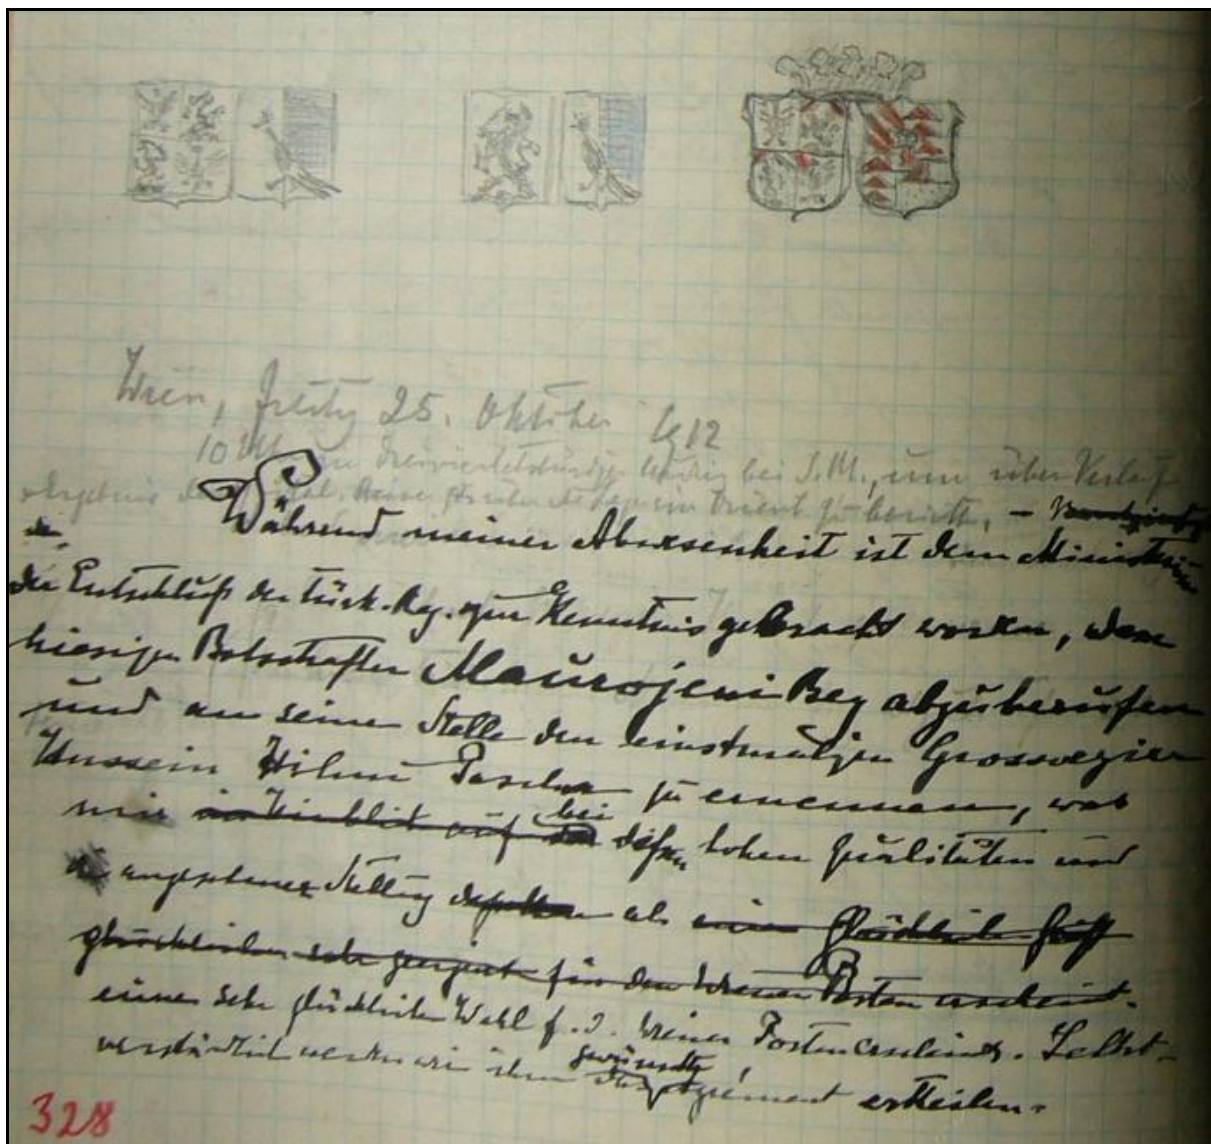 Wien, Freitag 25. Oktober 1912
10 Uhr dreiviertelstündige Audienz bei S.M., um über Verlauf
Ergebnis der Reise zu berichten, –
Während meiner Abwesenheit ist dem Ministerium
der Entschluß der türk. Reg. zur Kenntnis gebracht worden, den
hiesigen Botschafter Maurojeni Bey abzuberufen
und an seiner Stelle den einstmaligen Grossvezier
Hussein Hilmi Pascha zu ernennen, was
mir im Hinblick auf bei dessen hohen Qualitäten und
angesehener Stellung als eine glückliche
glücklichen sehr geeignet für den Wiener Posten erscheint.
einer sehr glücklichen Wahl f. d. Wiener Posten erscheint. Selbst-
verständlich werden wir ihm gewünschte Agrément erteilen.
328